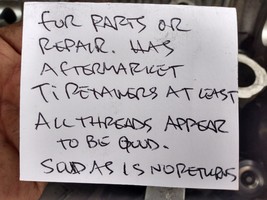 FOR PARTS OR
REPAIR. HAS
AFTERMARKET
Ti RETAINERS AT LEAST
ALL THREADS APPEAR
TO BE GOOD.
SOLD AS IS NO RETURNS